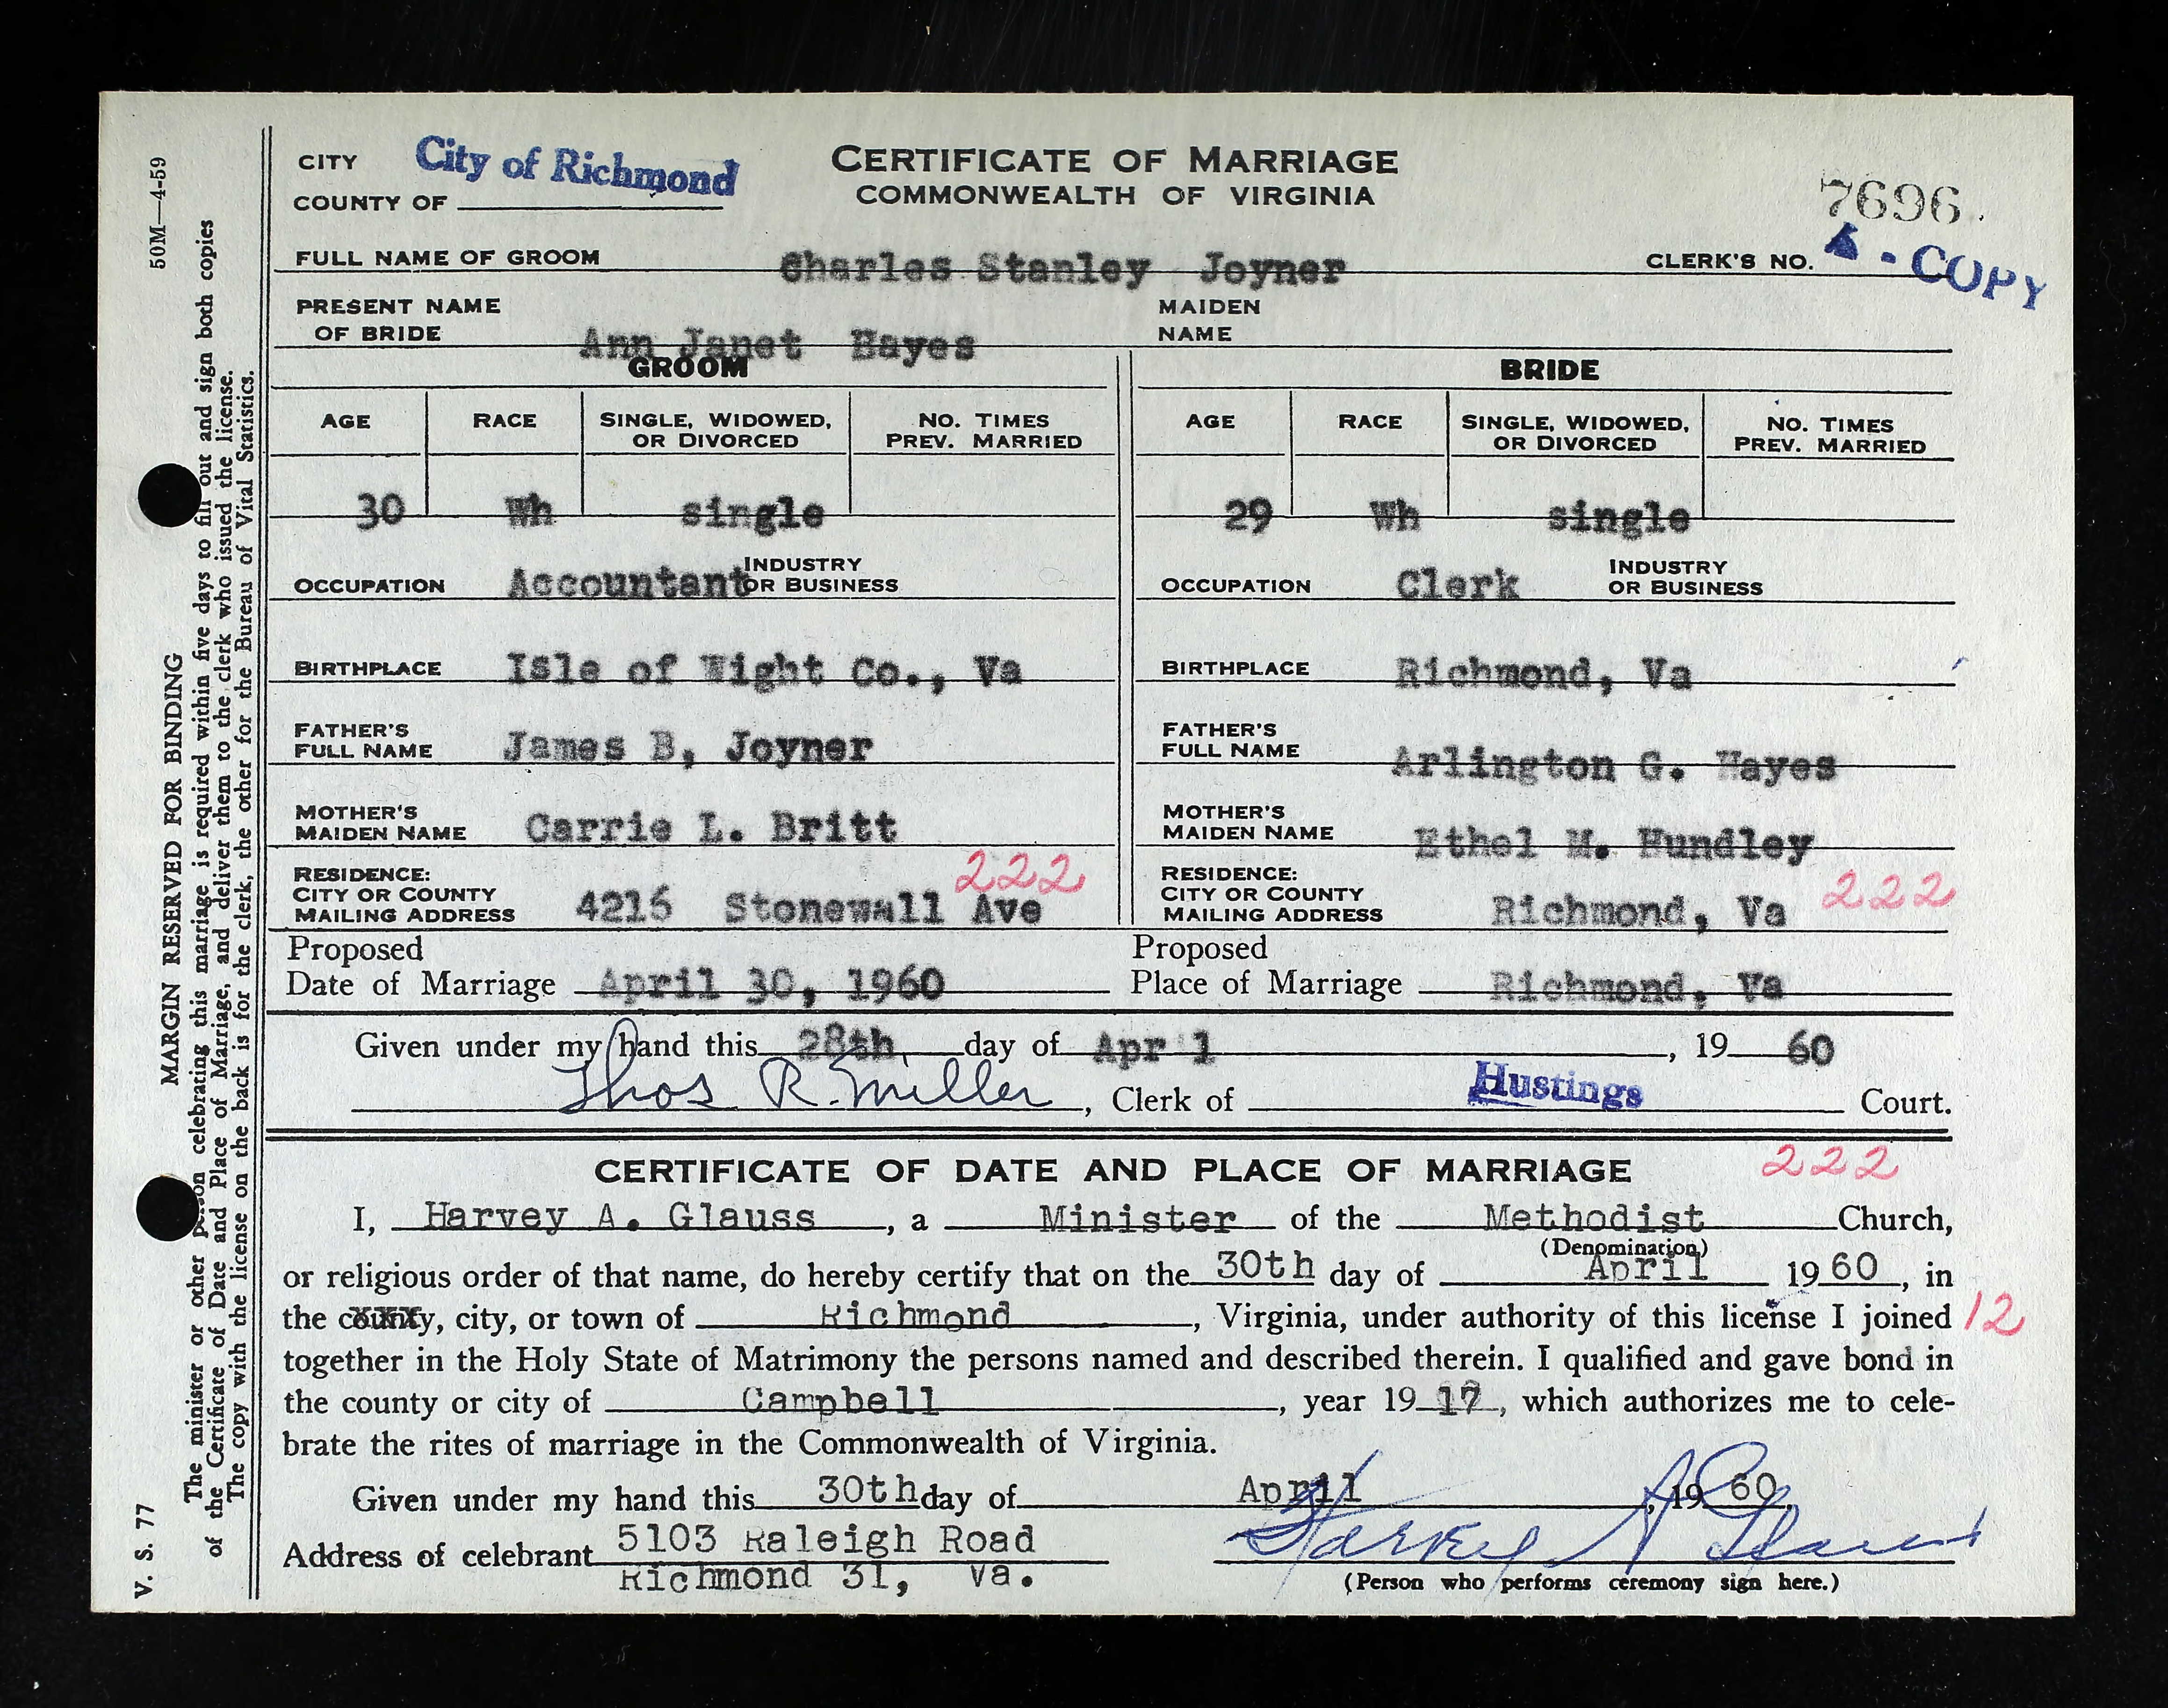 50M—4-59
MARGIN RESERVED FOR BINDING
The minister or other person celebrating this marriage is required within five days to fill out and sign both copies
of the Certificate of Date and Place of Marriage, and deliver them to the clerk who issued the license.
The copy with the license on the back is for the clerk, the other for the Bureau of Vital Statistics.
V. S. 77
CITY City of Richmond
COUNTY OF
CERTIFICATE OF MARRIAGE
COMMONWEALTH OF VIRGINIA
7696
FULL NAME OF GROOM Charles Stanley Joyner CLERK'S NO. A - COPY
PRESENT NAME MAIDEN
OF BRIDE Ann Janet Hayes NAME
GROOM BRIDE
AGE RACE SINGLE, WIDOWED, OR DIVORCED NO. TIMES PREV. MARRIED AGE RACE SINGLE, WIDOWED, OR DIVORCED NO. TIMES PREV. MARRIED
30 Wh single 29 Wh single
OCCUPATION Accountant INDUSTRY OR BUSINESS OCCUPATION Clerk INDUSTRY OR BUSINESS
BIRTHPLACE Isle of Wight Co., Va BIRTHPLACE Richmond, Va
FATHER'S FULL NAME James B, Joyner FATHER'S FULL NAME Arlington G. Hayes
MOTHER'S MAIDEN NAME Carrie L. Britt MOTHER'S MAIDEN NAME Ethel M. Hundley
RESIDENCE: 222 RESIDENCE: 222
CITY OR COUNTY CITY OR COUNTY
MAILING ADDRESS 4216 Stonewall Ave MAILING ADDRESS Richmond, Va
Proposed Proposed
Date of Marriage April 30, 1960 Place of Marriage Richmond, Va
Given under my hand this 28th, day of Apr 1, 19 60
Thos R. Miller, Clerk of Hustings Court.
CERTIFICATE OF DATE AND PLACE OF MARRIAGE 222
I, Harvey A. Glauss, a Minister of the Methodist Church,
(Denomination)
or religious order of that name, do hereby certify that on the 30th day of April 19 60, in
the county, city, or town of Richmond, Virginia, under authority of this license I joined 12
together in the Holy State of Matrimony the persons named and described therein. I qualified and gave bond in
the county or city of Campbell, year 19 17, which authorizes me to cele-
brate the rites of marriage in the Commonwealth of Virginia.
Given under my hand this 30th day of April, 19 60.
Address of celebrant 5103 Raleigh Road Harvey A Glauss
Richmond 31, Va. (Person who performs ceremony sign here.)